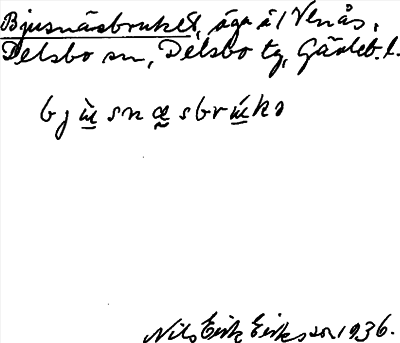 Bjusnäsbruket, äga å / Venås,
Delsbo sn, Delsbo tg, Gävleb. l.
bjùsnæsbrúkə
Nils Erik Eriksson 1936.